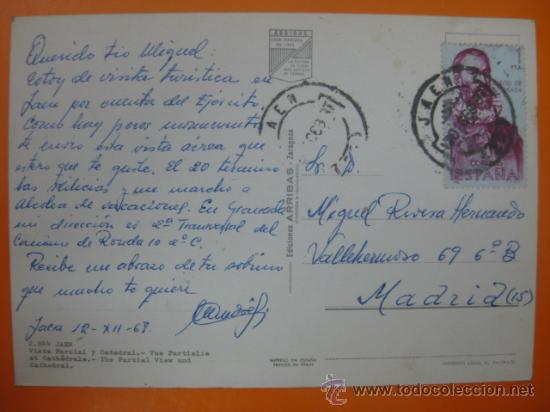 Querido tío Miguel:
Estoy de visita turística en
Jaen por cuenta del Ejército
Como hay pocos monumentos
te envio esta vista aerea que
espero que te guste. El 20 termino
las Milicias y me marcho a
de vacaciones. En Granada
mi dirección es 2ª Transversal del
Camino de Ronda 10 2º C.
Recibe un abrazo de tu sobrino
que mucho te quiere
Jaen 12-XII-68.
2.544 JAEN
Vista Parcial y Catedral.- Vue Partielle
et Cathédrale.- The Partial View and
Cathedral.
ARRIBAS
Ediciones ARRIBAS - Zaragoza
JAEN
JAEN
CORREOS
ESPAÑA
Sr. D.
Miguel Rivera Hernando
Vallehermoso 69 6º B
Madrid (15)
IMPRESO EN ESPAÑA
PRINTED IN SPAIN
todocoleccion
www.todocoleccion.com